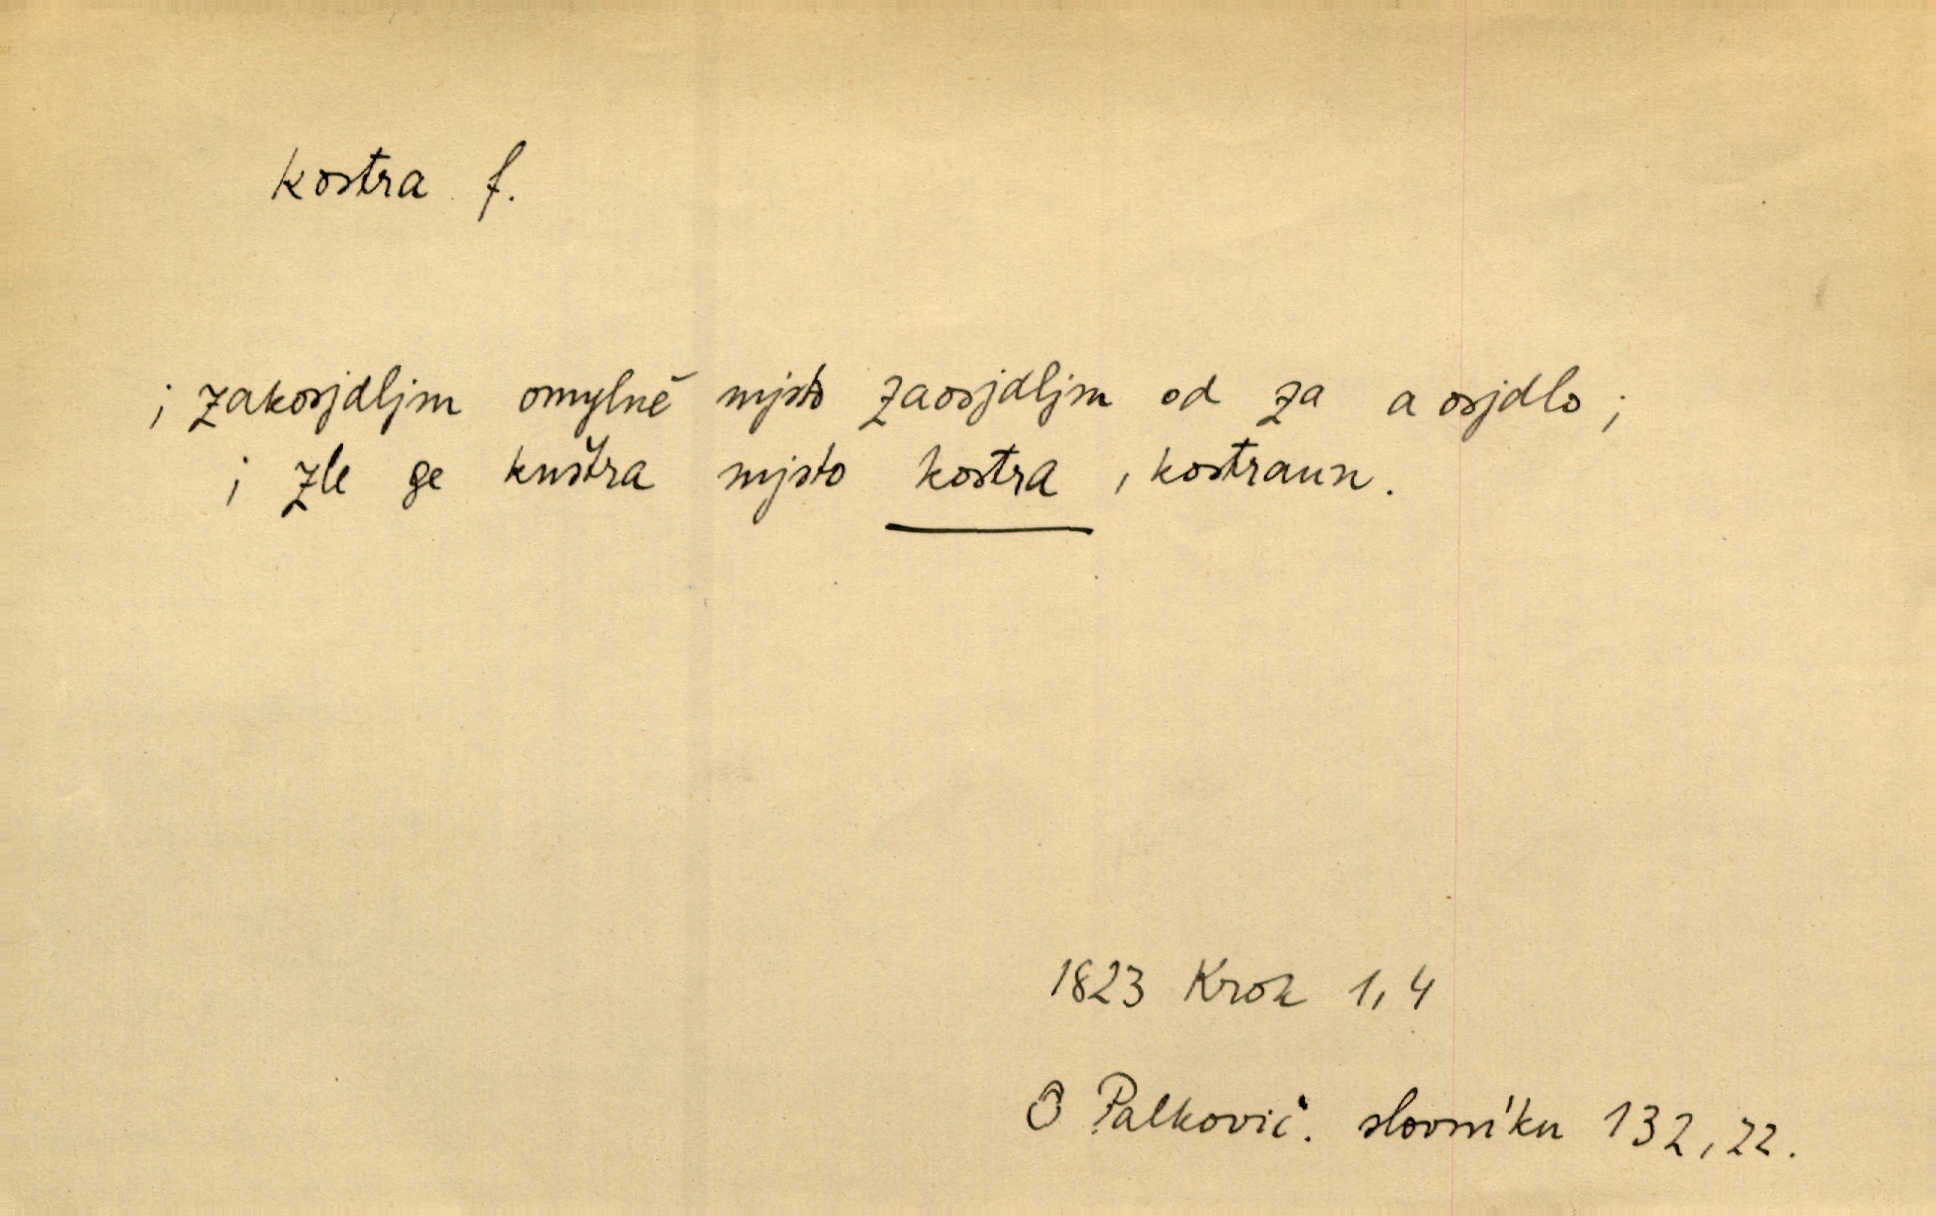 kostra f.
; zakosjdljm omylně mjsto zaosjdljm od za a osjdlo ;
; zle ge kuštra mjsto kostra , kostraun .
1823 Krok 1, 4
O Palkovič. slovníku 132, 22.